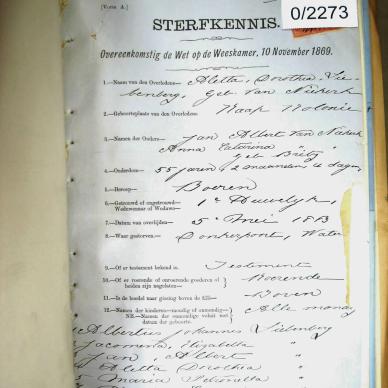 [Vorm A.]
0/2273
STERFKENNIS.
Overeenkomstig de Wet op de Weeskamer, 10 November 1869.
1.—Naam van den Overledene Aletta, Dorothia
Geb Van Niekerk
2.—Geboorteplaats van den Overledene Kaap Kolonie
3.—Namen der Ouders Jan Albert Van Niekerk
Anna Catarina
Geb
4.—Ouderdom 55 jaren, 2 maanden dagen
5.—Beroep Boeren
6.—Getrouwd of ongetrouwd 1e Huwelyk,
Weduwenaar of Weduwe
7.—Datum van overlijden 5 Mei
8.—Waar gestorven Donkerpoort, Water
9.—Of testament bekend is. Testament
10.—Of er roerende of onroerende goederen of Roerende
beiden zijn nagelaten
11.—Is de boedel naar gissing boven de £15 Boven
12.—Namen der kinderen—mondig of onmondig Alle mondig
NB.—Namen der onmondige voluit met
datum der geboorte.
Albertus Johannes
Jacomina, Elizabetta "
Jan, Albert "
Aletta Dorothia "
Maria Petronella "